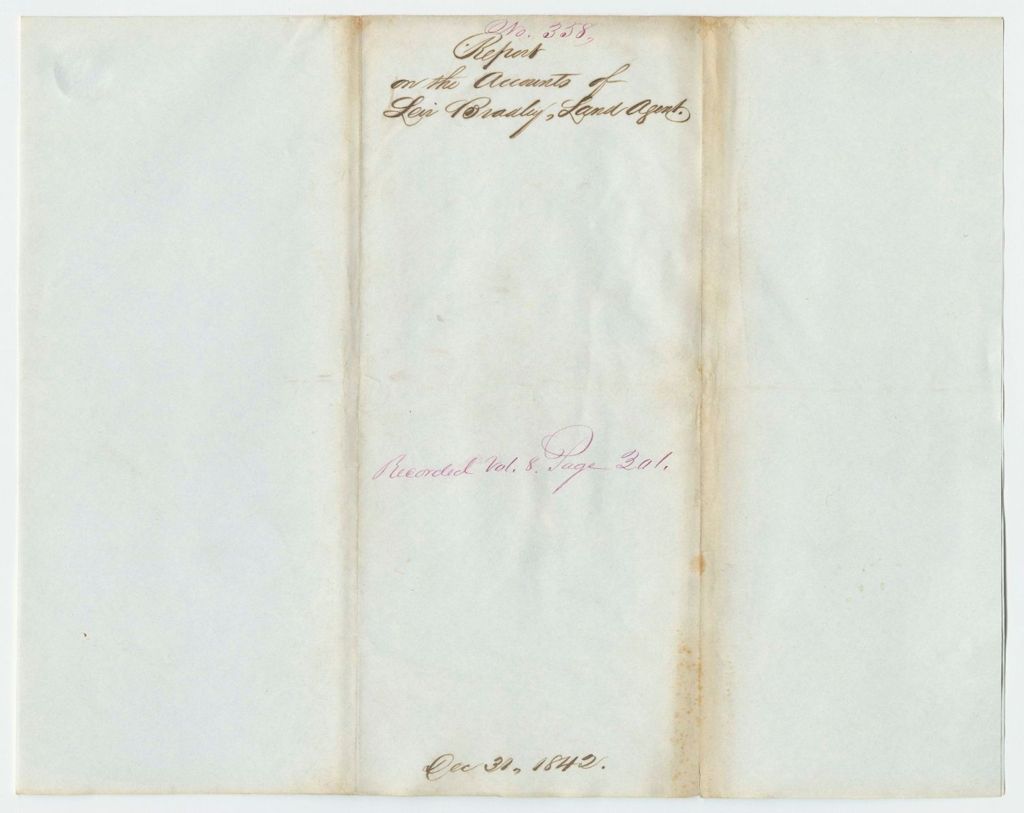 No. 358,
Report
on the Accounts of
Levi Bradley, Land Agent.
Recorded Vol. 8. Page 301.
Dec 31, 1842.